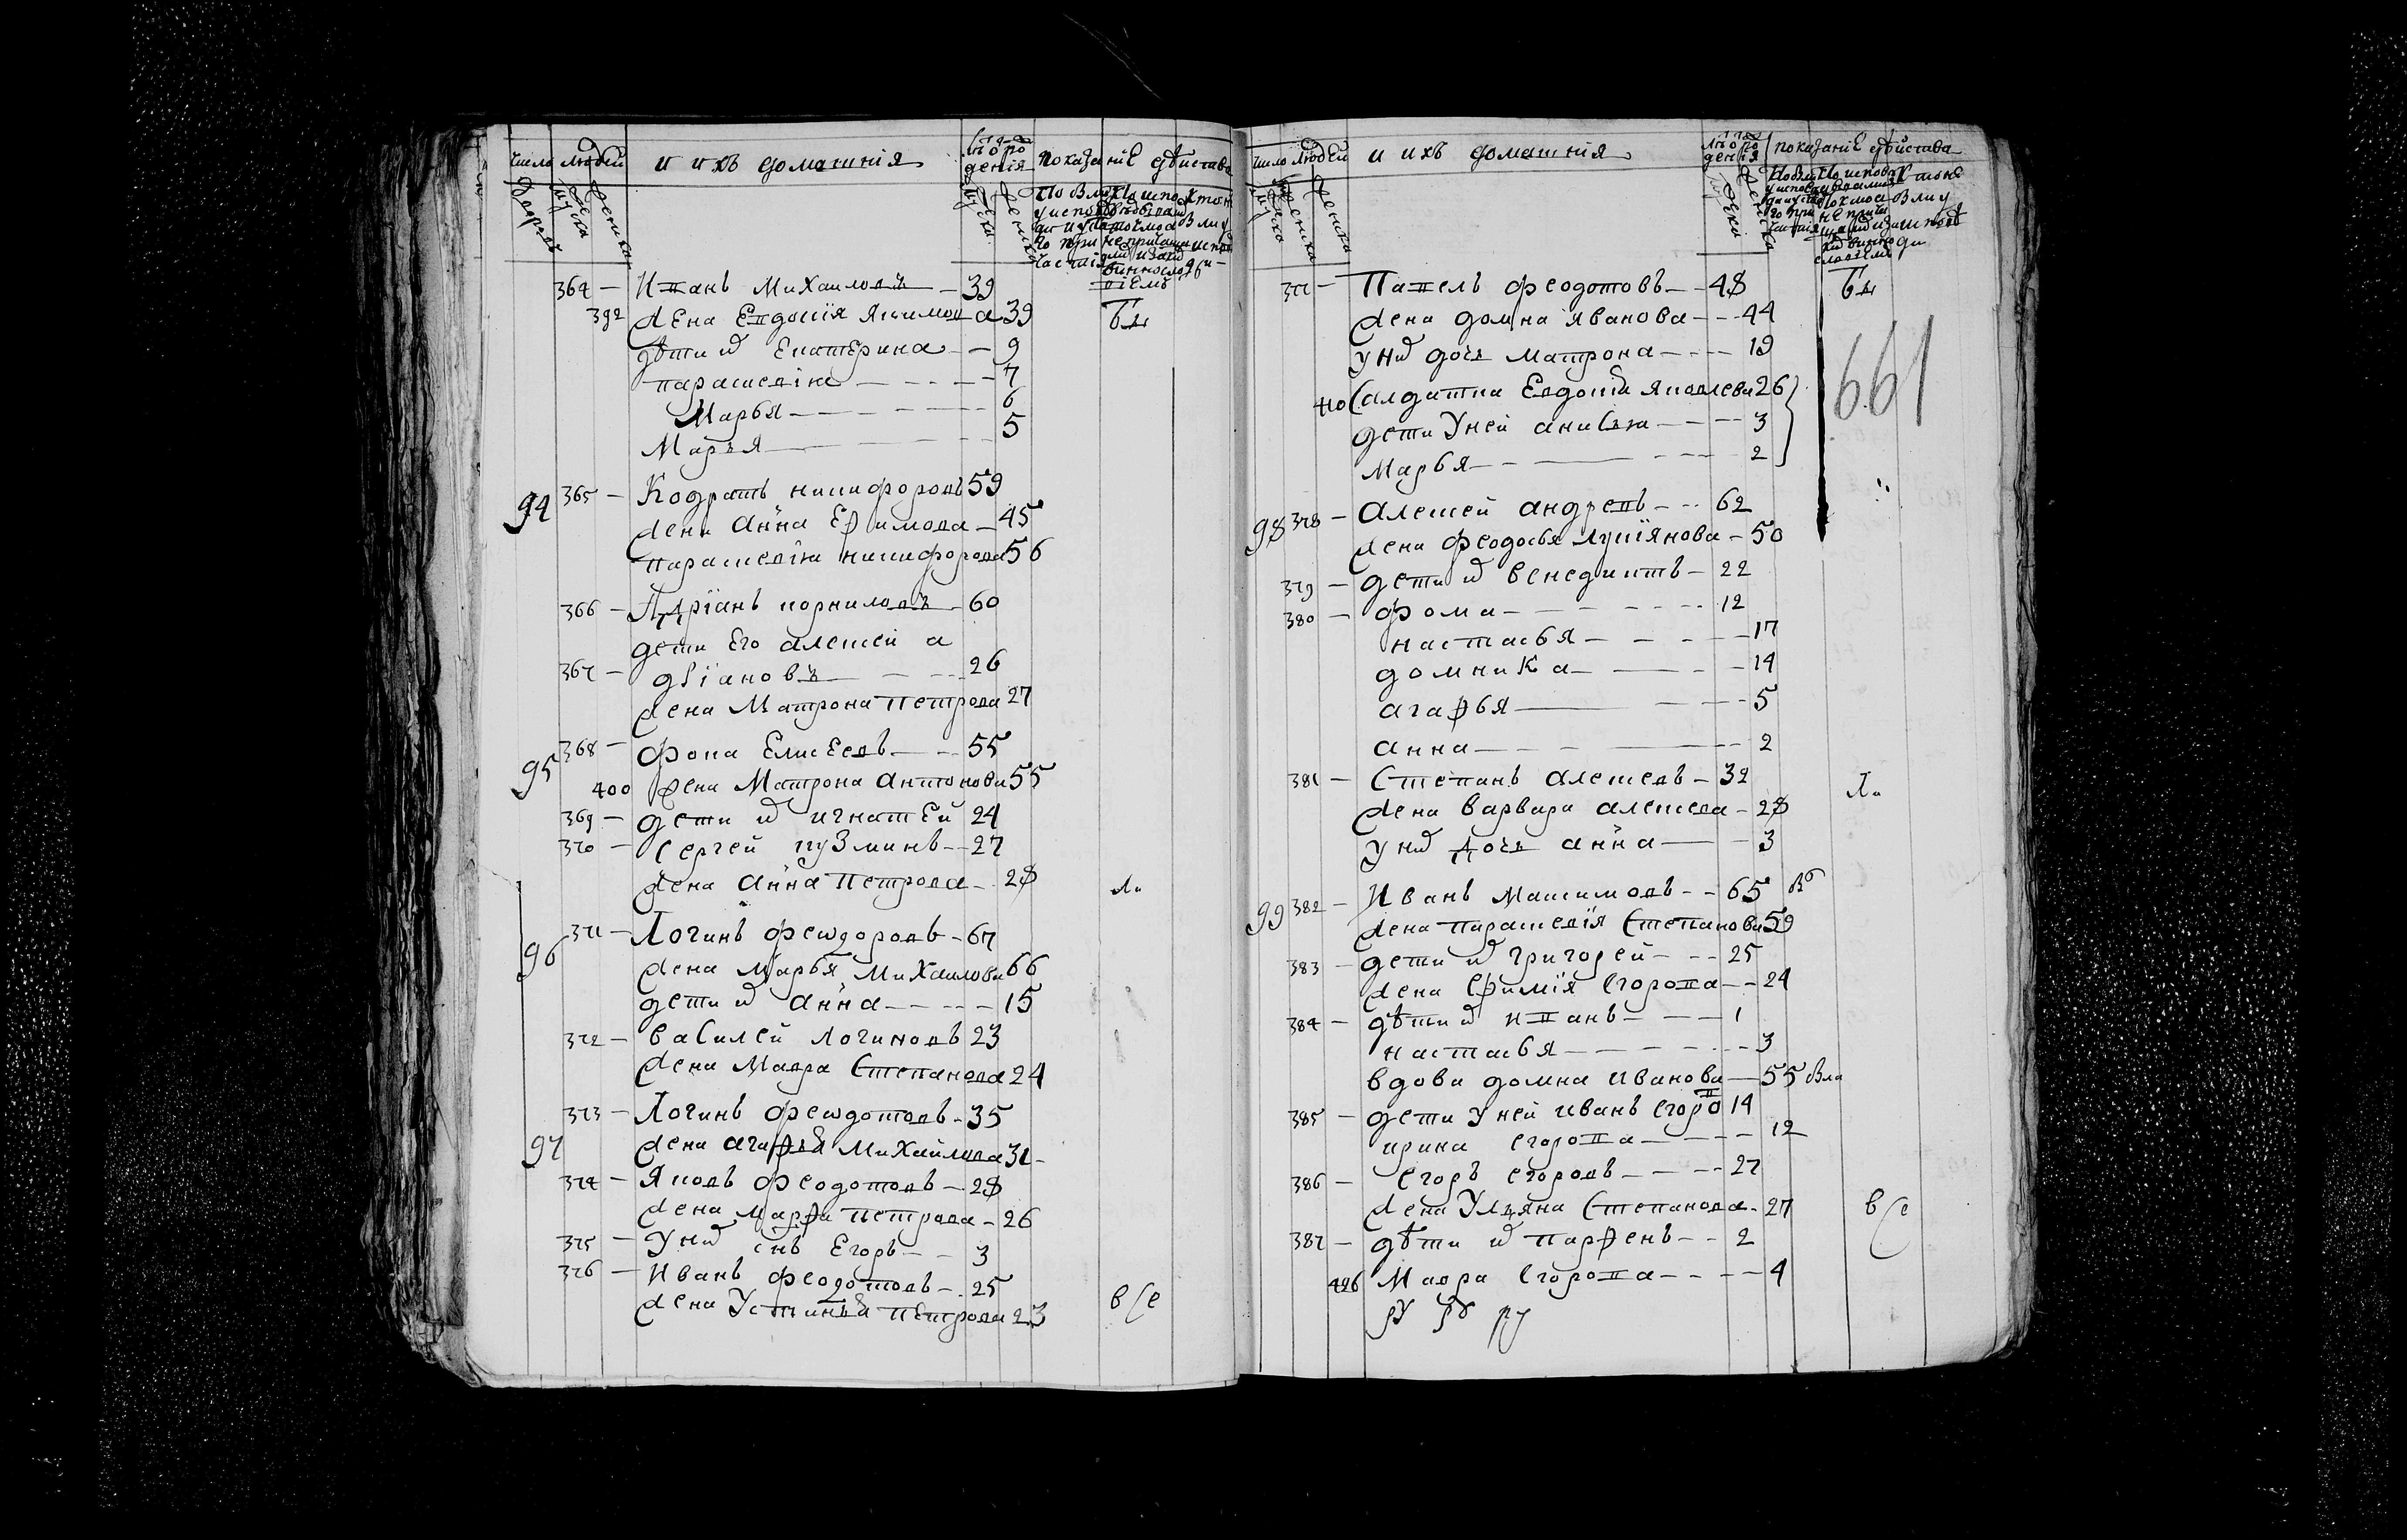 число людей и ихъ домашнія лѣ рож денія показаніе дѣйства
364 — Иванъ Михаиловъ — 39
392 жена Евдокія Якимова 39
дѣти ихъ Екатерина — 9
параскевіа — 7
Марья — 6
Марья — 5
94 365 — Кодратъ никифоровъ 59
жена анна Ефимова — 45
параскевіа никифорова 56
366 — Адріанъ корниловъ — 60
дети Его алексей а
367 — дріановъ — 26
жена Матрона Петрова 27
95 368 — фока Елисеевъ — 55
400 жена Матрона антонова 55
369 — дети их игнатЕй 24
370 — Сергей кузминъ — 27
жена анна Петрова — 28
96 371 — Логинъ феѡдоровъ — 67
жена Марья Михаилова 66
дети их анна — 15
372 — василей логиновъ 23
жена Мавра Степанова 24
97 373 — Логинъ феѡдотовъ — 35
жена агафья Михайлова 31
374 — Яковъ феодотовъ — 28
жена марфа петрова — 26
375 — Уних снъ Егоръ — 3
376 — Иванъ феодотовъ — 25
жена Устинья пЕтрова 23
в се
число людей и ихъ домашнія лѣ рож денія показаніе дѣйства
377 — Павелъ феодотовъ — 48
жена домна иванова — 44
уних дочь матрона — 19
410 Салдатка Евдокия Яковлева 26
дети Уней анисья — 3
марья — 2
661
98 378 — алексей андреевъ — 62
жена феодосья лукіянова — 50
379 — дети их венедиктъ — 22
380 — фома — 12
настасья — 17
домника — 14
агафья — 5
анна — 2
381 — Степанъ алексеевъ — 32
жена варвара алексеева — 28
уних дочь анна — 3
99 382 — Иванъ Максимовъ — 65
жена параскевія Степанова 59
383 — дети их григорей — 25
жена Ефимія Егорова — 24
384 — дѣти их иванъ — 1
настасья — 3
вдова домна иванова — 55
385 — дети уней иванъ егоровъ 14
ирина егорова — 12
386 — Егоръ егоровъ — 27
жена Ульяна Степанова — 27 в се
387 — дѣти их парфенъ — 2
426 Мавра Егорова — 4